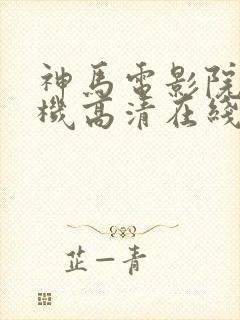 神馬電影院
機高清在綫
芷一青